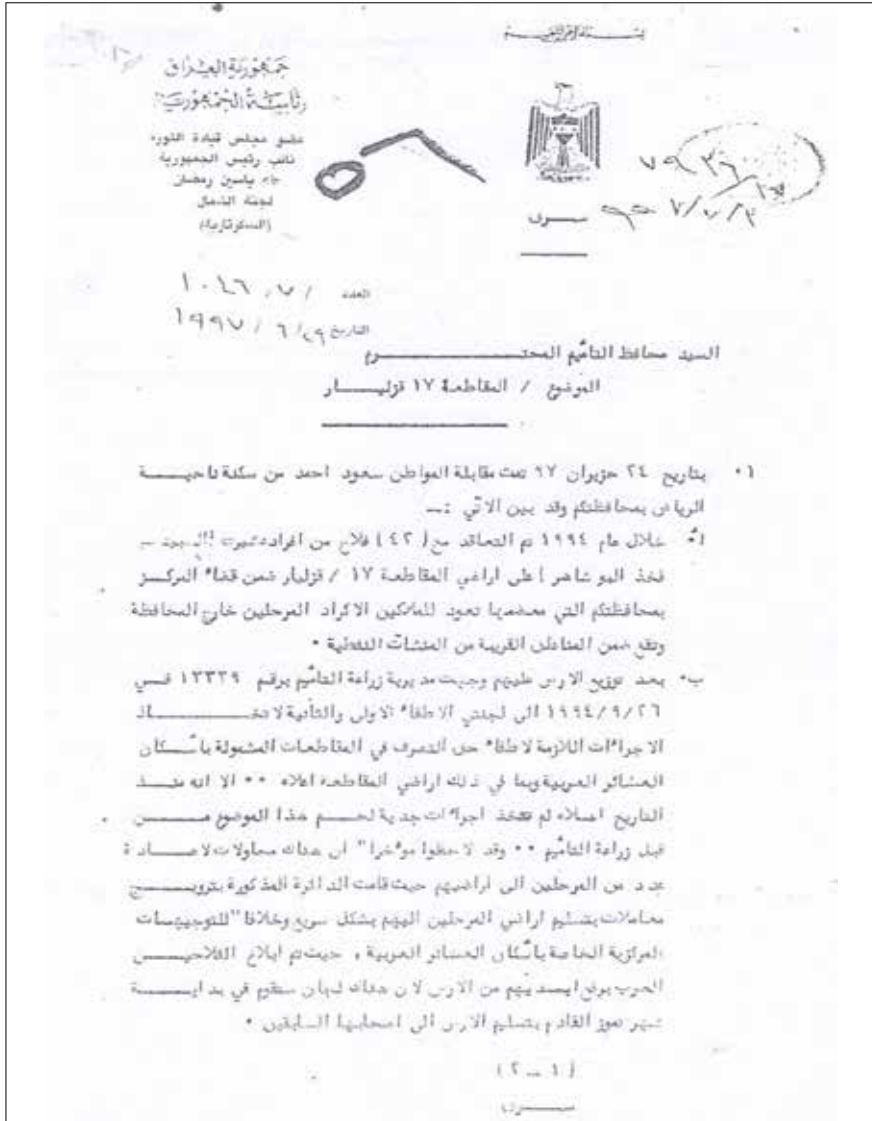 بسم الله الرحمن الرحيم
جمهورية العراق
رئاسة الجمهورية
عضو مجلس قيادة الثورة
نائب رئيس الجمهورية
طه ياسين رمضان
لجنة الشمال
(السكرتارية)
سري
العدد / ٧ / ١٠٤٦
التاريخ ٢٩ / ٦ / ١٩٩٧
السيد محافظ التأميم المحتـــــرم
الموضوع / المقاطعة ١٧ قزليـــار
١٠ بتاريخ ٢٤ حزيران ٩٧ تمت مقابلة المواطن سعود احمد من سكنة ناحيـــة
الرياض بمحافظتكم وقد بين الاتي :ـ
أ٠ خلال عام ١٩٩٤ تم التعاقد مع (٤٢) فلاح من افراد
فخذ البو شاهر) على اراضي المقاطعة ١٧ / قزليار ضمن قضاء المركـــز
بمحافظتكم التي معضمها تعود للمالكين الاكراد المرحلين خارج المحافظة
وتقع ضمن المناطق القريبة من المنشآت النفطية ٠
ب٠ بعد توزيع الارض عليهم وجهت مديرية زراعة التأميم برقم ١٣٣٣٩ فـــي
١٩٩٤/٩/٢٦ الى لجنتي الاطفاء الاولى والثانية لاتخـــاذ
الاجراءات اللازمة لاطفاء حق التصرف في المقاطعات المشمولة باسكان
العشائر العربية وبما في ذلك اراضي المقاطعة اعلاه ٠٠ الا انه منـــذ
التاريخ اعلاه لم تتخذ اجراءات جدية لحسم هذا الموضوع مـــن
قبل زراعة التأميم ٠٠ وقد لاحظوا مؤخرا" ان هناك محاولات لاعـــادة
عدد من المرحلين الى اراضيهم حيث قامت الدائرة المذكورة بترويـــج
معاملات بتسليم اراضي المرحلين اليهم بشكل سريع وخلافا" للتوجيهـــات
المركزية الخاصة باسكان العشائر العربية ، حيث تم ابلاغ الفلاحيـــن
العرب برفع ايديهم من الارض لان هناك لجان ستقوم في بدايـــة
شهر تموز القادم بتسليم الارض الى اصحابها السابقين ٠
(١ ـ ٢)
سري